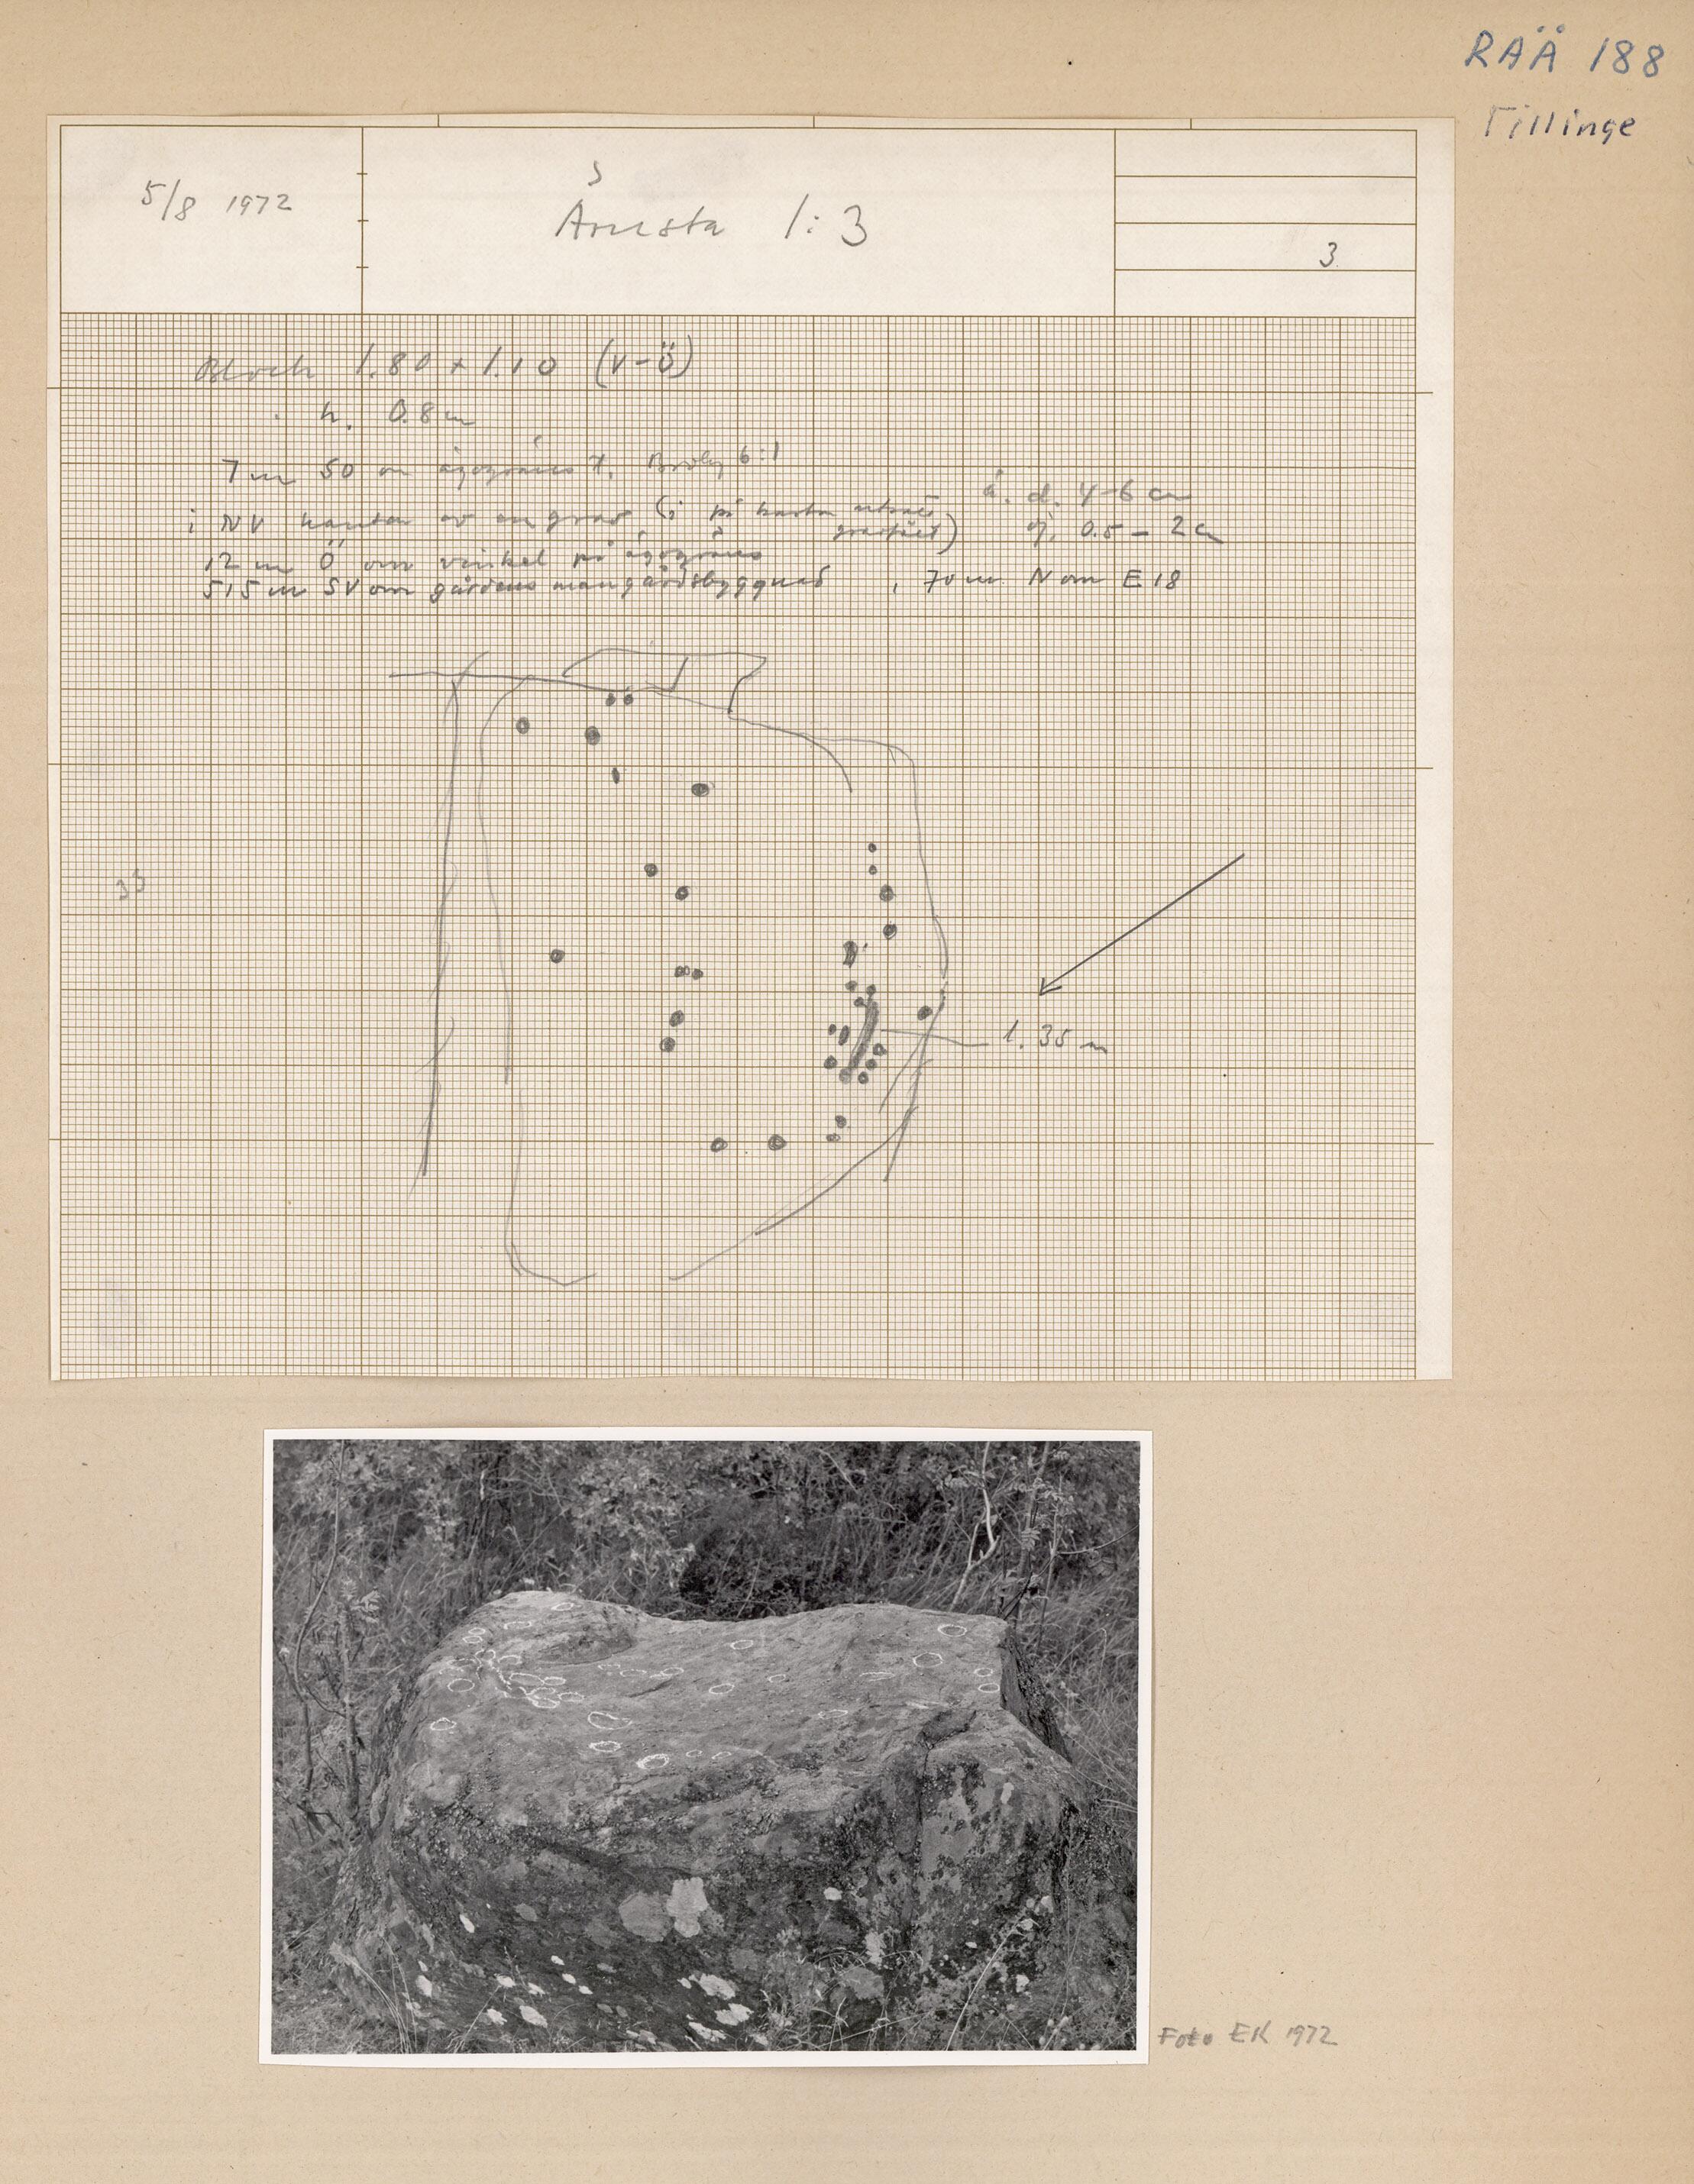 RAÄ 188
Tillinge
5/8 1972
S
Årnsta 1:3
3
Block 1.80 x 1.10 (V-Ö)
h. 0.8 m
7 m SO om ägogräns t. Broby 6:1
å. d. 4-6 cm
i NV kanten av en grav (i på kartan utmärkt
gravfält) dj. 0.5 - 2 c
12 m Ö om vinkel på ägogräns
515 m SV om gårdens mangårdsbyggnad , 70 m N om E18
35
1.35 m
Foto EK 1972